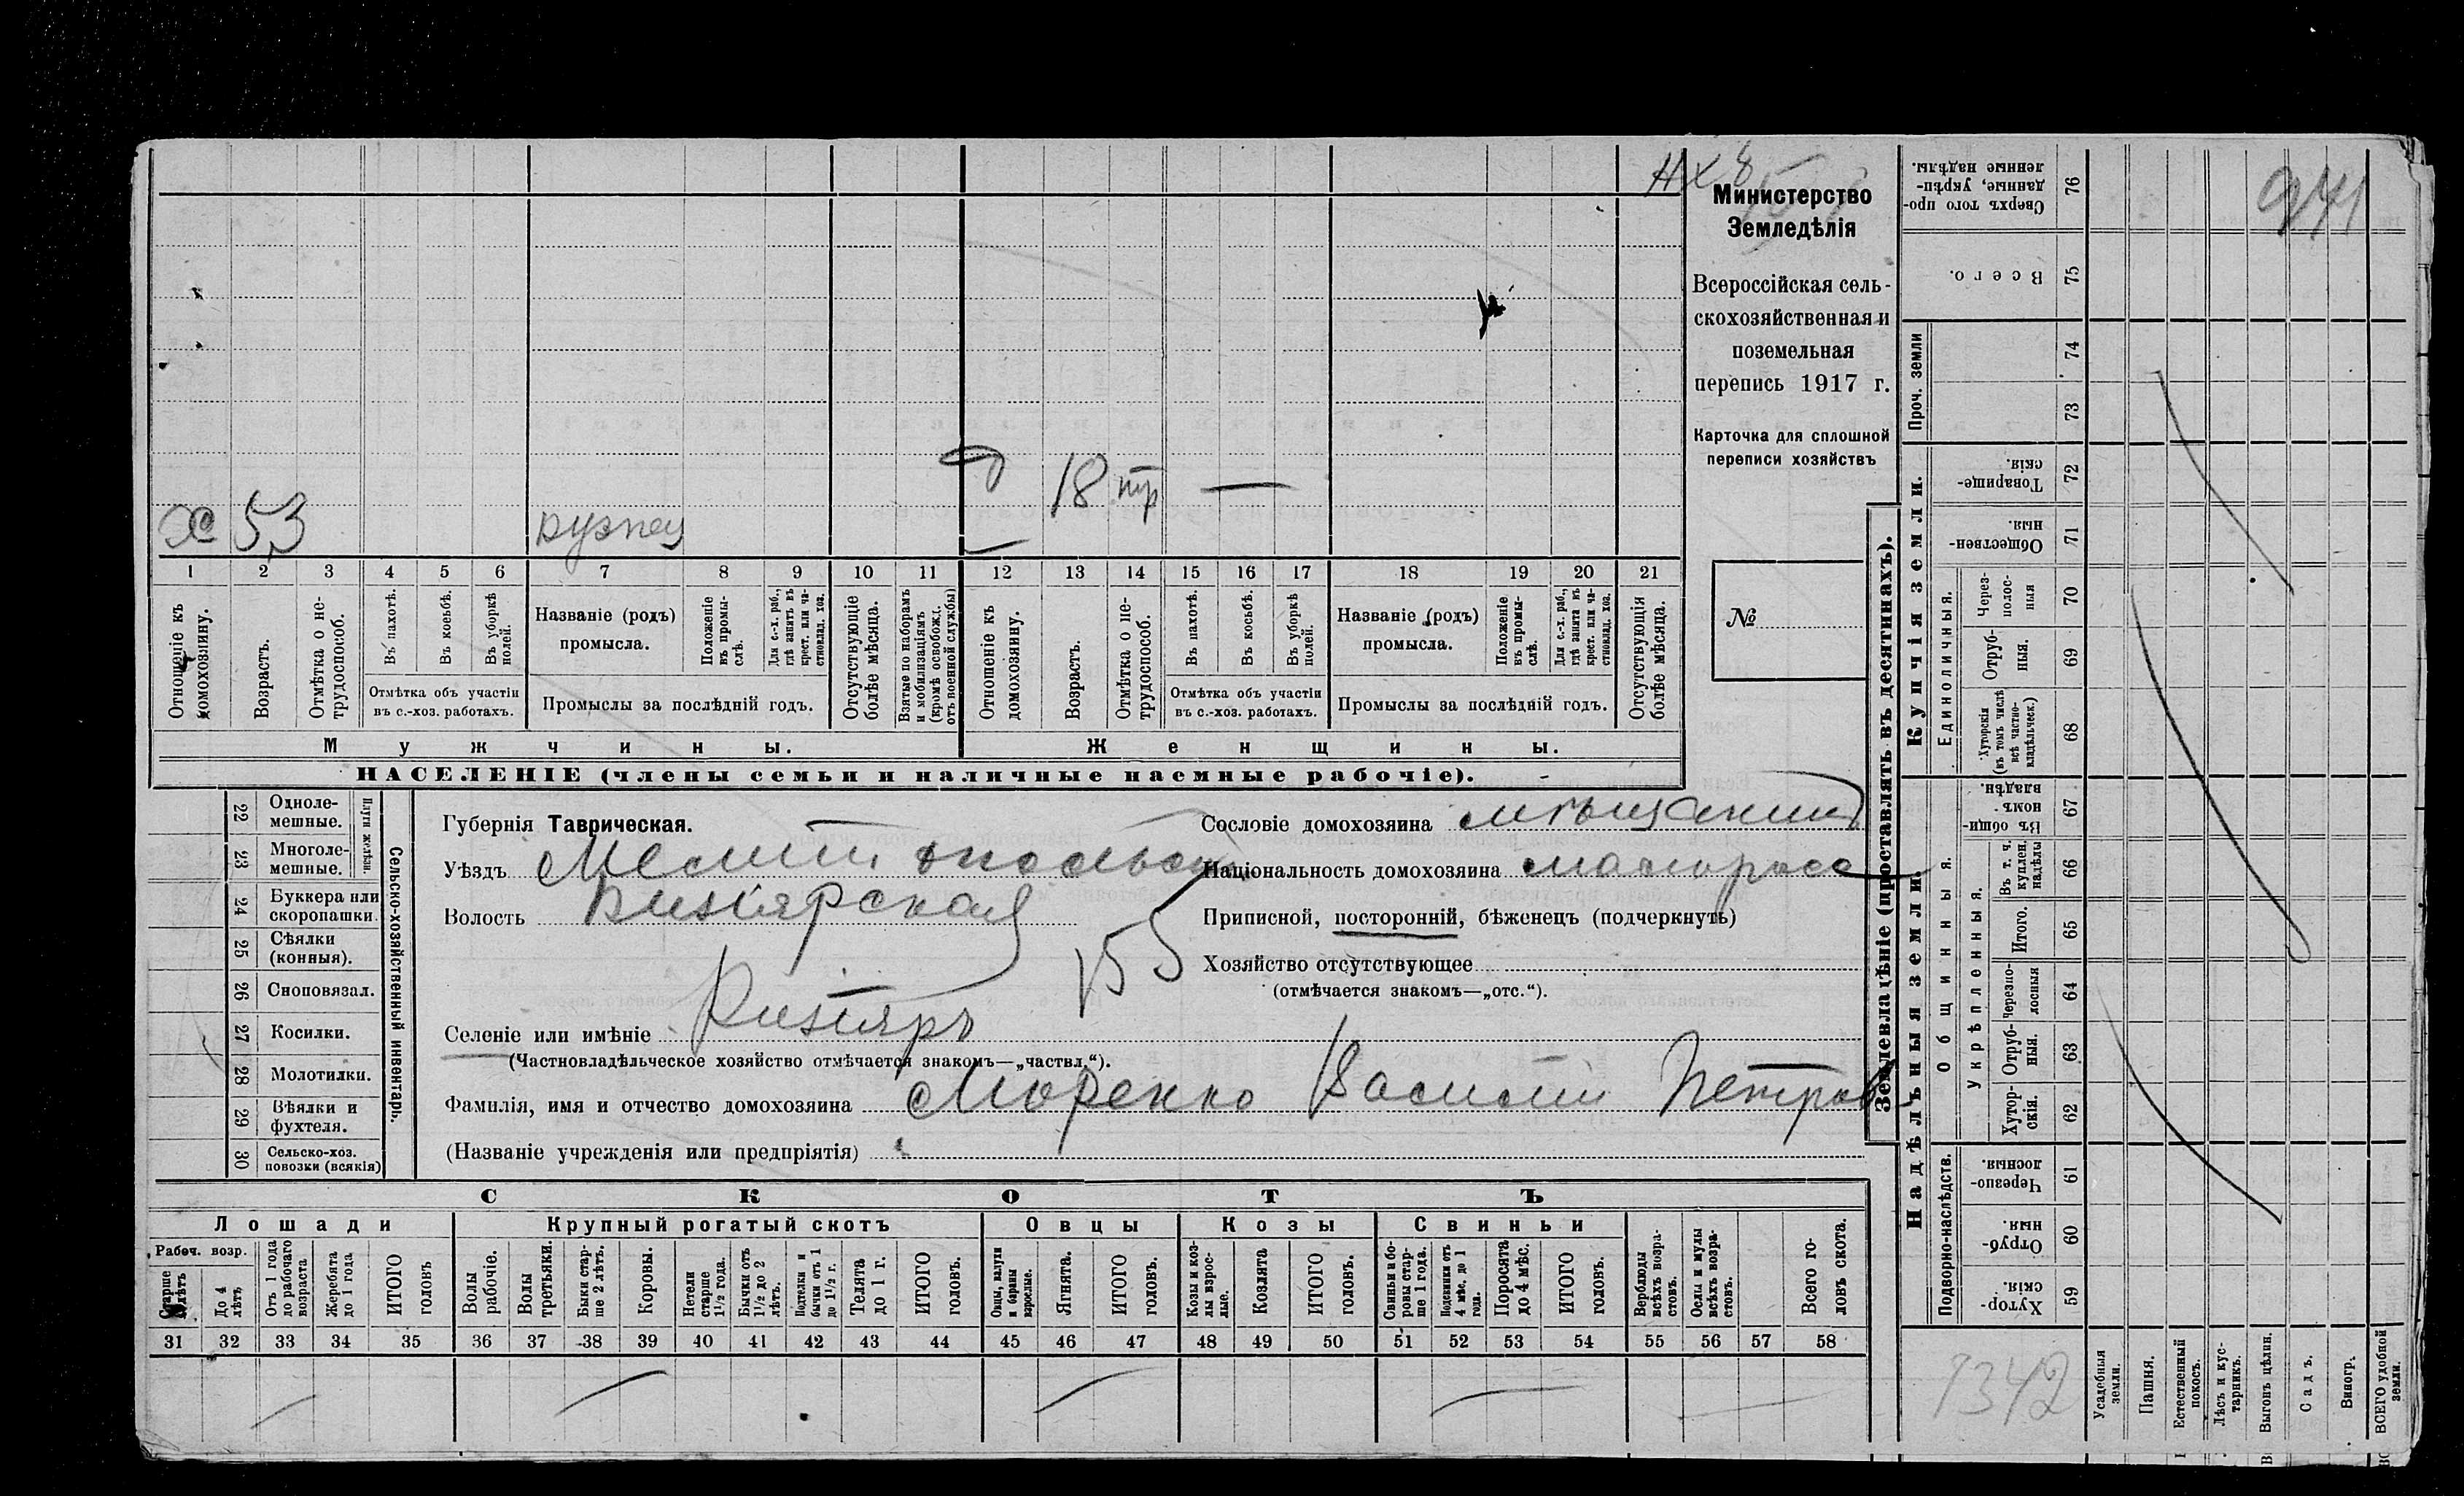 941
Министерство
Земледѣлія
Всероссійская сель-
скохозяйственная и
поземельная
перепись 1917 г.
Карточка для сплошной
переписи хозяйствъ
№
18 тр —
х 53 кузнец
1 2 3 4 5 6 7 8 9 10 11 12 13 14 15 16 17 18 19 20 21
Отношеніе къ домохозяину.
Возрастъ.
Отмѣтка о не-
трудоспособ.
Въ пахотѣ.
Въ косьбѣ.
Въ уборкѣ
полей.
Отмѣтка объ участіи
въ с.-хоз. работахъ.
Названіе (родъ)
промысла.
Положеніе
въ промы-
слѣ.
Для с.-х. раб.,
гдѣ занятъ въ
крест. или ча-
стновлад. хоз.
Промыслы за послѣдній годъ.
Отсутствующіе
болѣе мѣсяца.
Взятые по наборамъ
и мобилизаціямъ
(кромѣ освобожд.
отъ военной службы)
Отношеніе къ
домохозяину.
Возрастъ.
Отмѣтка о не-
трудоспособ.
Въ пахотѣ.
Въ косьбѣ.
Въ уборкѣ
полей.
Отмѣтка объ участіи
въ с.-хоз. работахъ.
Названіе (родъ)
промысла.
Положеніе
въ промы-
слѣ.
Для с.-х. раб.,
гдѣ занята въ
крест. или ча-
стновлад. хоз.
Промыслы за послѣдній годъ.
Отсутствующія
болѣе мѣсяца.
Мужчины.
Женщины.
НАСЕЛЕНІЕ (члены семьи и наличные наемные рабочіе).
22 Одноле-
мешные.
23 Многоле-
мешные.
Плуги желѣзн.
24 Буккера или
скоропашки.
25 Сѣялки
(конныя).
26 Сноповязал.
27 Косилки.
28 Молотилки.
29 Вѣялки и
фухтеля.
30 Сельско-хоз.
повозки (всякія)
Сельско-хозяйственный инвентарь.
Губернія Таврическая.
Уѣздъ Мелитопольск
Волость Кизіярская
155
Селеніе или имѣніе Кизіяръ
(Частновладѣльческое хозяйство отмѣчается знакомъ—„частвл.“).
Фамилія, имя и отчество домохозяина Моренко Василій Петров
(Названіе учрежденія или предпріятія)
Сословіе домохозяина мѣщанинъ
Національность домохозяина малоросс
Приписной, посторонній, бѣженецъ (подчеркнуть)
Хозяйство отсутствующее
(отмѣчается знакомъ—„отс.“).
СКОТЪ
Лошади
Крупный рогатый скотъ
Овцы
Козы
Свиньи
Рабоч. возр.
Старше
4 лѣтъ
До 4
лѣтъ
Отъ 1 года
до рабочаго
возраста
Жеребята
до 1 года
ИТОГО
головъ
Волы
рабочіе.
Волы
третьяки.
Быки стар-
ше 2 лѣтъ.
Коровы.
Нетели
старше
1½ года.
Бычки отъ
1½ до 2
лѣтъ.
Подтелки и
бычки отъ 1
до 1½ г.
Телята
до 1 г.
ИТОГО
головъ.
Овцы, валухи
и бараны
взрослые.
Ягнята.
ИТОГО
головъ.
Козы и коз-
лы взрос-
лые.
Козлята
ИТОГО
головъ.
Свиньи и бо-
ровы стар-
ше 1 года.
Подсвинки отъ
4 мѣс. до 1
года.
Поросята
до 4 мѣс.
ИТОГО
головъ.
Верблюды
всѣхъ возра-
стовъ.
Ослы и мулы
всѣхъ возра-
стовъ.
Всего го-
ловъ скота.
31 32 33 34 35 36 37 38 39 40 41 42 43 44 45 46 47 48 49 50 51 52 53 54 55 56 57 58
Землевладѣніе (проставлять въ десятинахъ).
Купчія земли.
Надѣльныя земли.
Сверхъ того про-
данные, укрѣп-
ленные надѣлы. 76
Всего. 75
Проч. земли 74 73
Товарище-
скія. 72
Обществен-
ныя. 71
Единоличныя.
Через-
полос-
ныя 70
Отруб-
ныя. 69
Хуторскія
(въ томъ числѣ
всѣ частно-
владѣльческ.) 68
Общинныя.
Въ общи-
номъ
владѣн. 67
Укрѣпленныя.
Въ т. ч.
куплен.
надѣлы 66
Итого. 65
Черезпо-
лосныя 64
Отруб-
ныя. 63
Хутор-
скія. 62
Подворно-наслѣдств.
Черезпо-
лосныя. 61
Отруб-
ныя. 60
Хутор-
скія. 59
1342
Усадебныя
земли.
Пашня.
Естественный
покосъ.
Лѣсъ и кус-
тарникъ.
Выгонъ цѣлин.
Садъ.
Виногр.
ВСЕГО удобной
земли.